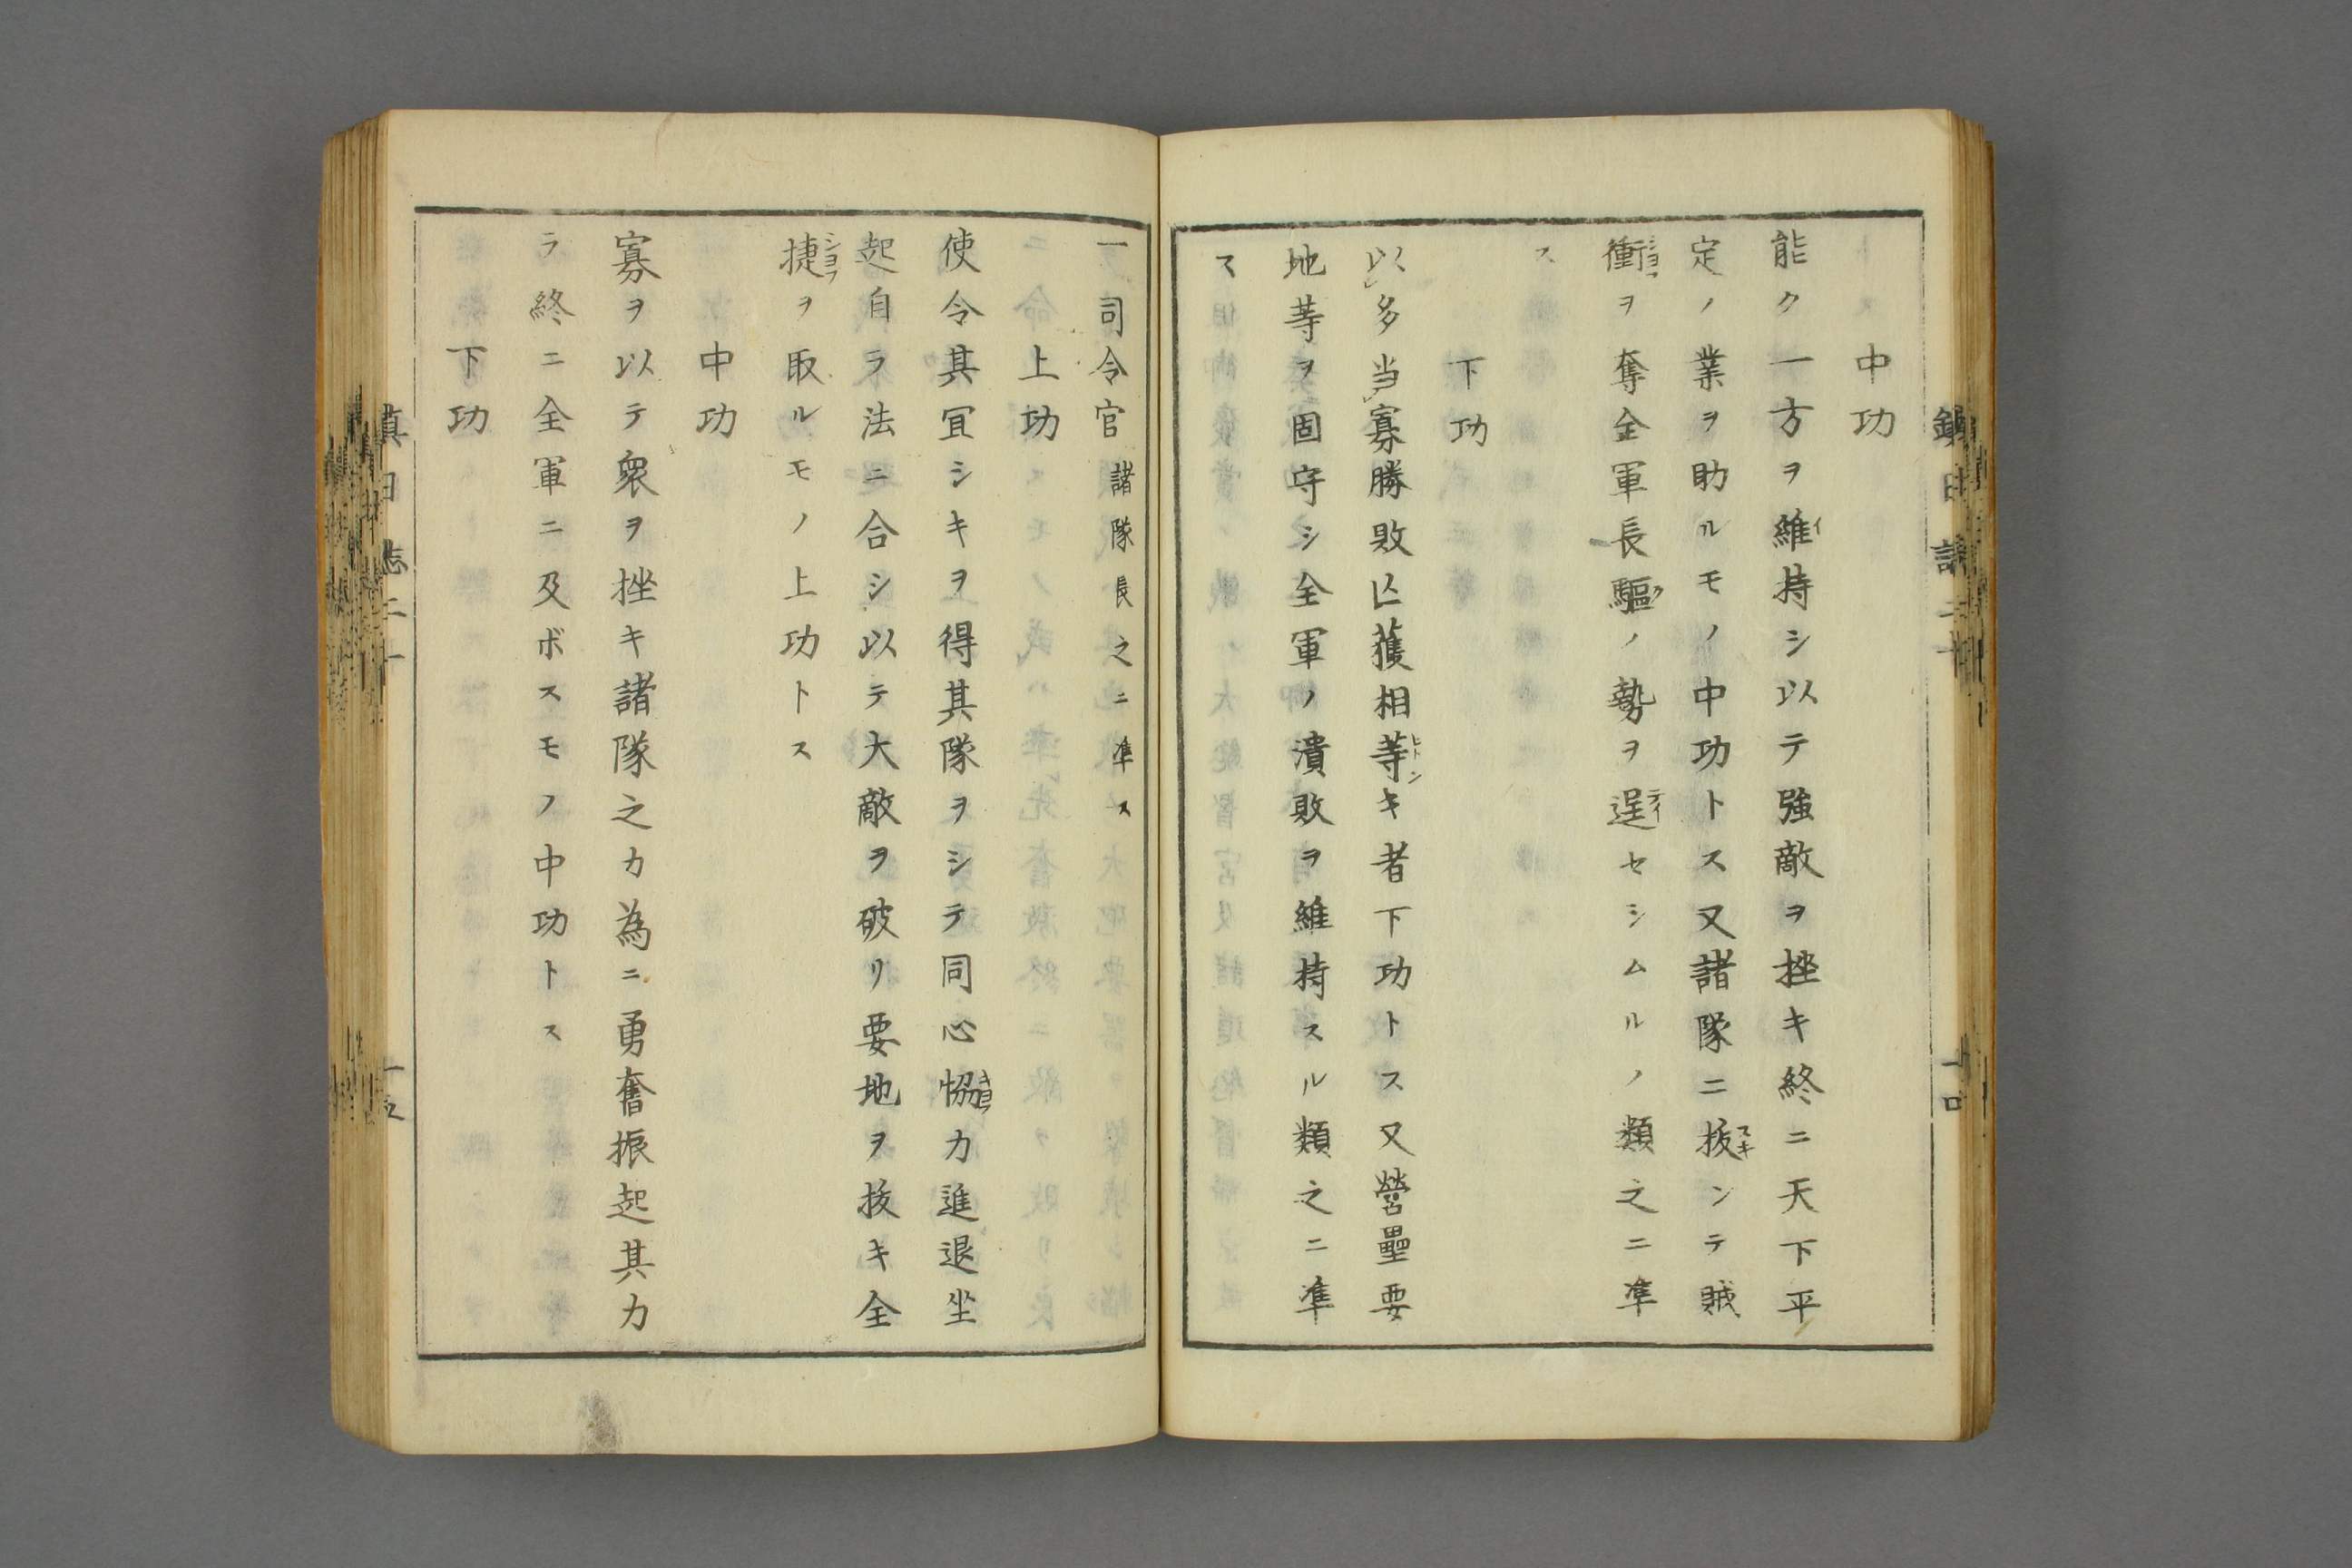 中功
能ク一方ヲ維持シ以テ強敵ヲ挫キ終ニ天下平
定ノ業ヲ助ルモノ中功トス又諸隊ニ抜ンテ賊
衝ヲ奪全軍長驅ノ勢ヲ逞セシムルノ類之ニ準
ス
下功
以多当寡勝敗亡獲相等キ者下功トス又營壘要
地等ヲ固守シ全軍ノ潰敗ヲ維持スル類之ニ準
ス
一司令官 諸隊長之ニ準ス
上功
使令其冝シキヲ得其隊ヲシテ同心恊力進退坐
起自ラ法ニ合シ以テ大敵ヲ破リ要地ヲ抜キ全
捷ヲ取ルモノ上功トス
中功
寡ヲ以テ衆ヲ挫キ諸隊之カ為ニ勇奮振起其力
ラ終ニ全軍ニ及ボスモノ中功トス
下功